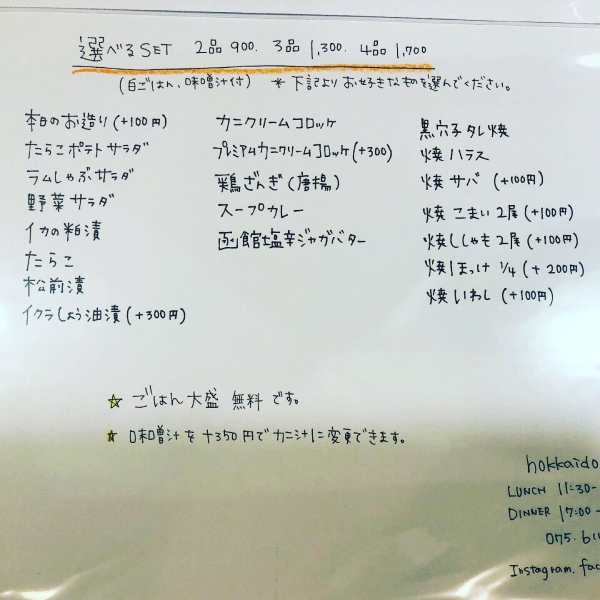 選べるSET 2品 900. 3品 1,300. 4品 1,700
(白ごはん、味噌汁付) * 下記よりお好きなものを選んでください。
本日のお造り (+100円)
たらこポテトサラダ
ラムしゃぶサラダ
野菜サラダ
イカの粕漬
たらこ
松前漬
イクラしょう油漬 (+300円)
カニクリームコロッケ
プレミアムカニクリームコロッケ(+300)
鶏ざんぎ (唐揚)
スープカレー
函館塩辛ジャガバター
黒穴子タレ焼
焼ハラス
焼サバ (+100円)
焼こまい2尾 (+100円)
焼ししゃも2尾 (+100円)
焼ほっけ 1/4 (+200円)
焼いわし (+100円)
☆ ごはん大盛 無料です。
☆ 味噌汁を+350円でカニ汁に変更できます。
hokkaido
LUNCH 11:30-
DINNER 17:00-
075.611
Instagram. fac